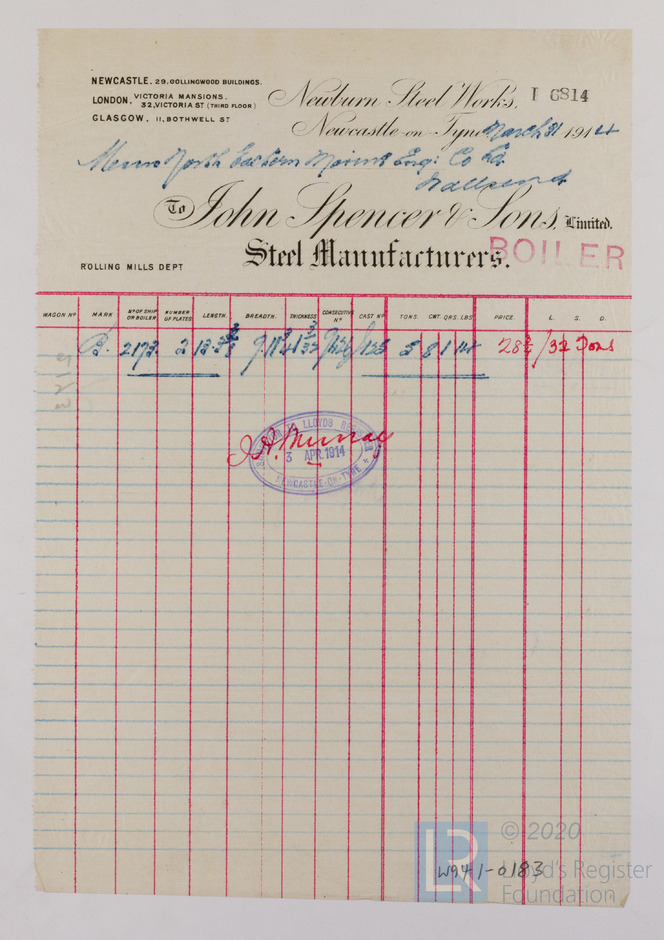 NEWCASTLE. 29. COLLINGWOOD BUILDINGS.
LONDON. VICTORIA MANSIONS.
32, VICTORIA ST (THIRD FLOOR)
GLASGOW, 11, BOTHWELL ST
Newburn Steel Works, I 6814
Newcastle-on-Tyne March 31 1914
Messrs North Eastern Marine Eng: Co Ld
Wallsend
To John Spencer & Sons, Limited.
Steel Manufacturers.
BOILER
ROLLING MILLS DEPT
WAGON No MARK No OF SHIP OR BOILER NUMBER OF PLATES LENGTH. BREADTH. THICKNESS CONSECUTIVE No CAST No TONS. CWT. QRS. LBS PRICE. L. S. D.
B. 2173. 2 5 8 1 14 28 /32 Tons
SURVEYOR TO LLOYDS REGISTER
J. A. Murray
3 APR. 1914
NEWCASTLE-ON-TYNE
LR
© 2020
Lloyd's Register
Foundation
W941-0183